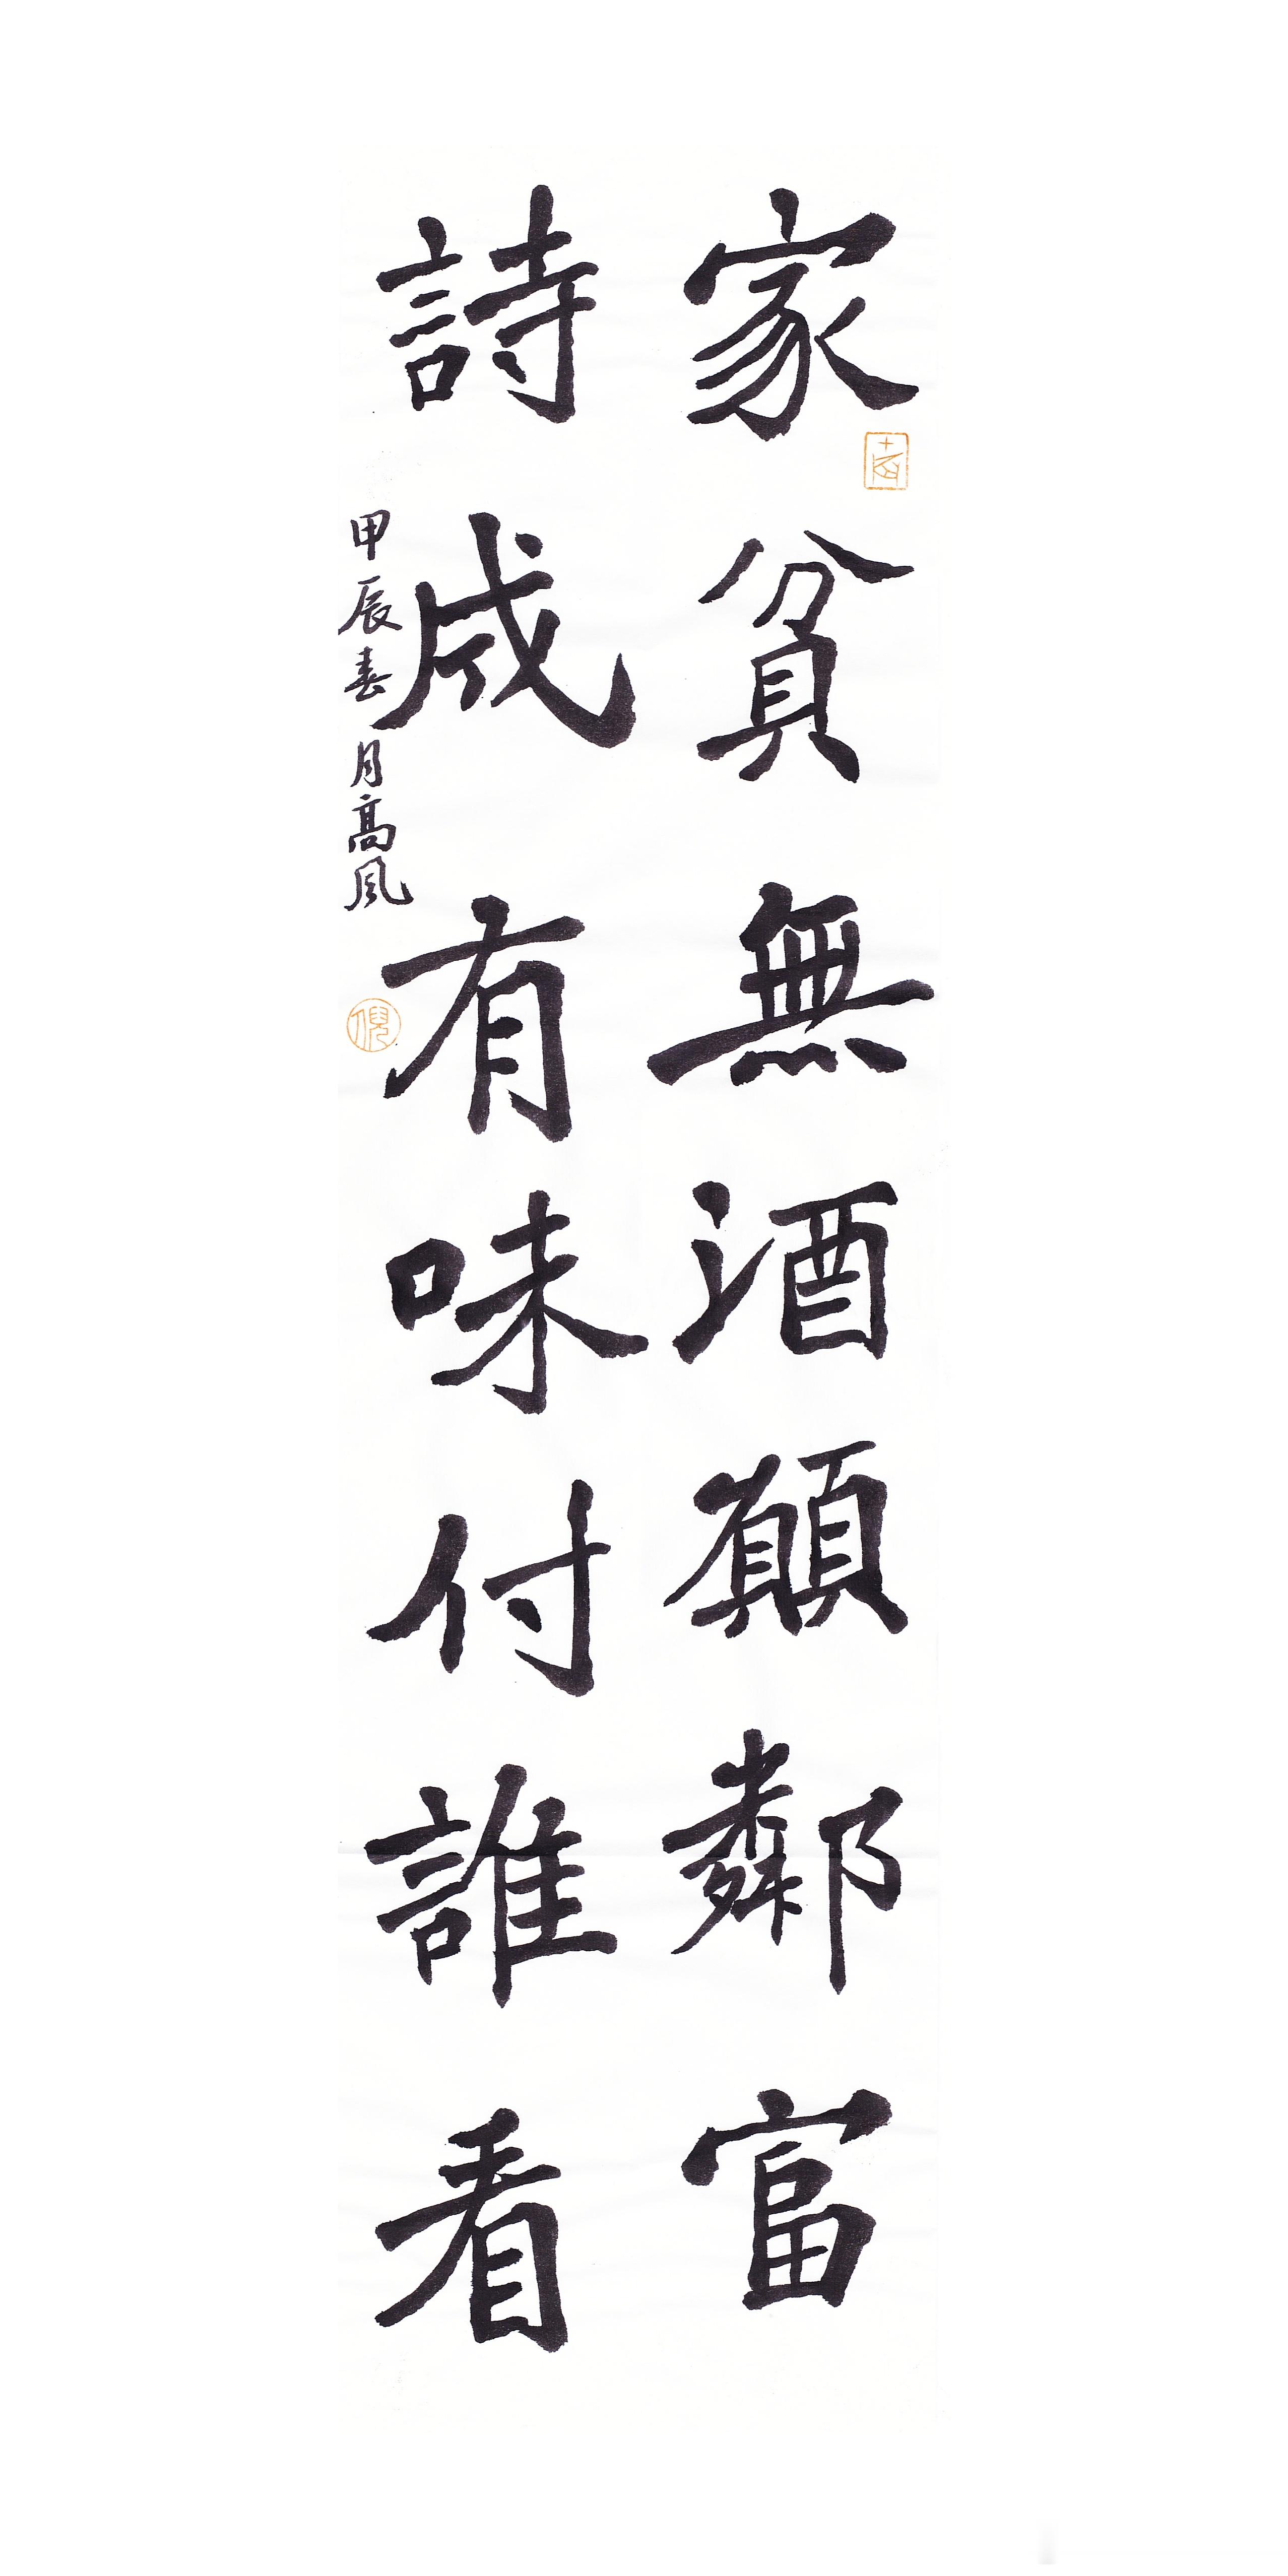 家貧無酒願鄰富
詩成有味付誰看
甲辰春月高風
倪